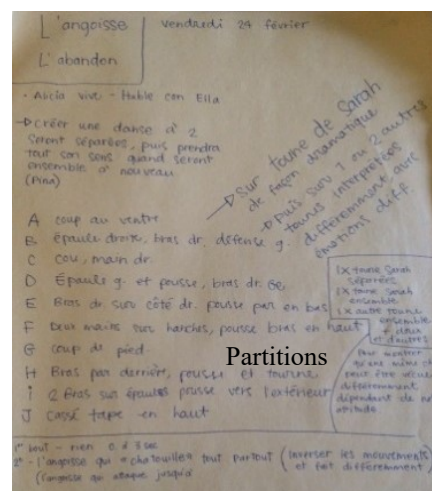 L'angoisse
L'abandon
vendredi 24 février
- Alicia vive - Hable con Ella
→ créer une danse à 2
seront séparées, puis prendra
tout son sens quand seront
ensemble à nouveau.
(Pina)
→ Sur toune de Sarah
de façon dramatique
→ Puis sur 1 ou 2 autres
tounes interprétées
différemment avec
émotions diff.
A coup au ventre
B épaule droite, bras dr. défense g.
C cou, main dr.
D Épaule g. et pousse, bras dr.
E Bras dr. sur côté dr. pousse par en bas
F Deux mains sur hanches, pousse bras en haut
G coup de pied
H Bras par derrière, pousse et tourne
i 2 Bras sur épaules pousse vers l'extérieur
J Cassé tape en haut
1x toune Sarah
séparées
1x toune Sarah
ensemble
1x autre toune
ensemble
+ deux
d'autres
Pour montrer
qu'une même ch
peut être
différemment
dépendant de no
attitude.
Partitions
1er bout - rien 0 à 3 sec
2e - l'angoisse qui "chatouille" tout partout (inverser les mouvements
et fait différemment)
(l'angoisse qui attaque jusqu'à